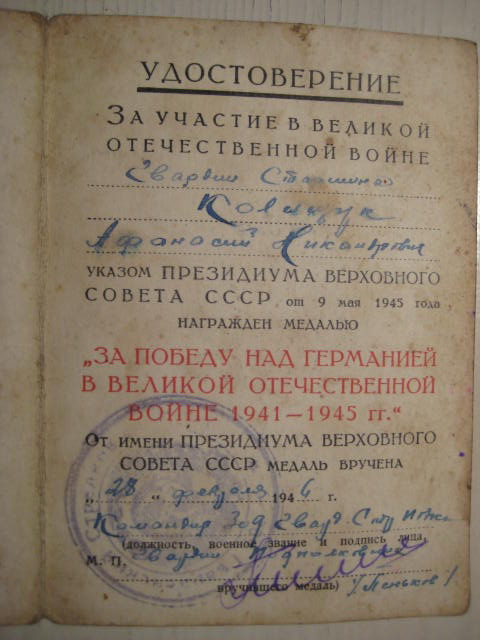 УДОСТОВЕРЕНИЕ
ЗА УЧАСТИЕ В ВЕЛИКОЙ
ОТЕЧЕСТВЕННОЙ ВОЙНЕ
Гвардии Старшина
Ковальчук
Афанасий Никанорович
УКАЗОМ ПРЕЗИДИУМА ВЕРХОВНОГО
СОВЕТА СССР от 9 мая 1945 года
НАГРАЖДЕН МЕДАЛЬЮ
„ЗА ПОБЕДУ НАД ГЕРМАНИЕЙ
В ВЕЛИКОЙ ОТЕЧЕСТВЕННОЙ
ВОЙНЕ 1941—1945 гг.“
ОТ ИМЕНИ ПРЕЗИДИУМА ВЕРХОВНОГО
СОВЕТА СССР МЕДАЛЬ ВРУЧЕНА
„28“ февраля 1946 г.
Командир Гвард.
(должность, военное звание и подпись лица,
М. П. Гвардии Подполковник
вручившего медаль) /Пеньков/